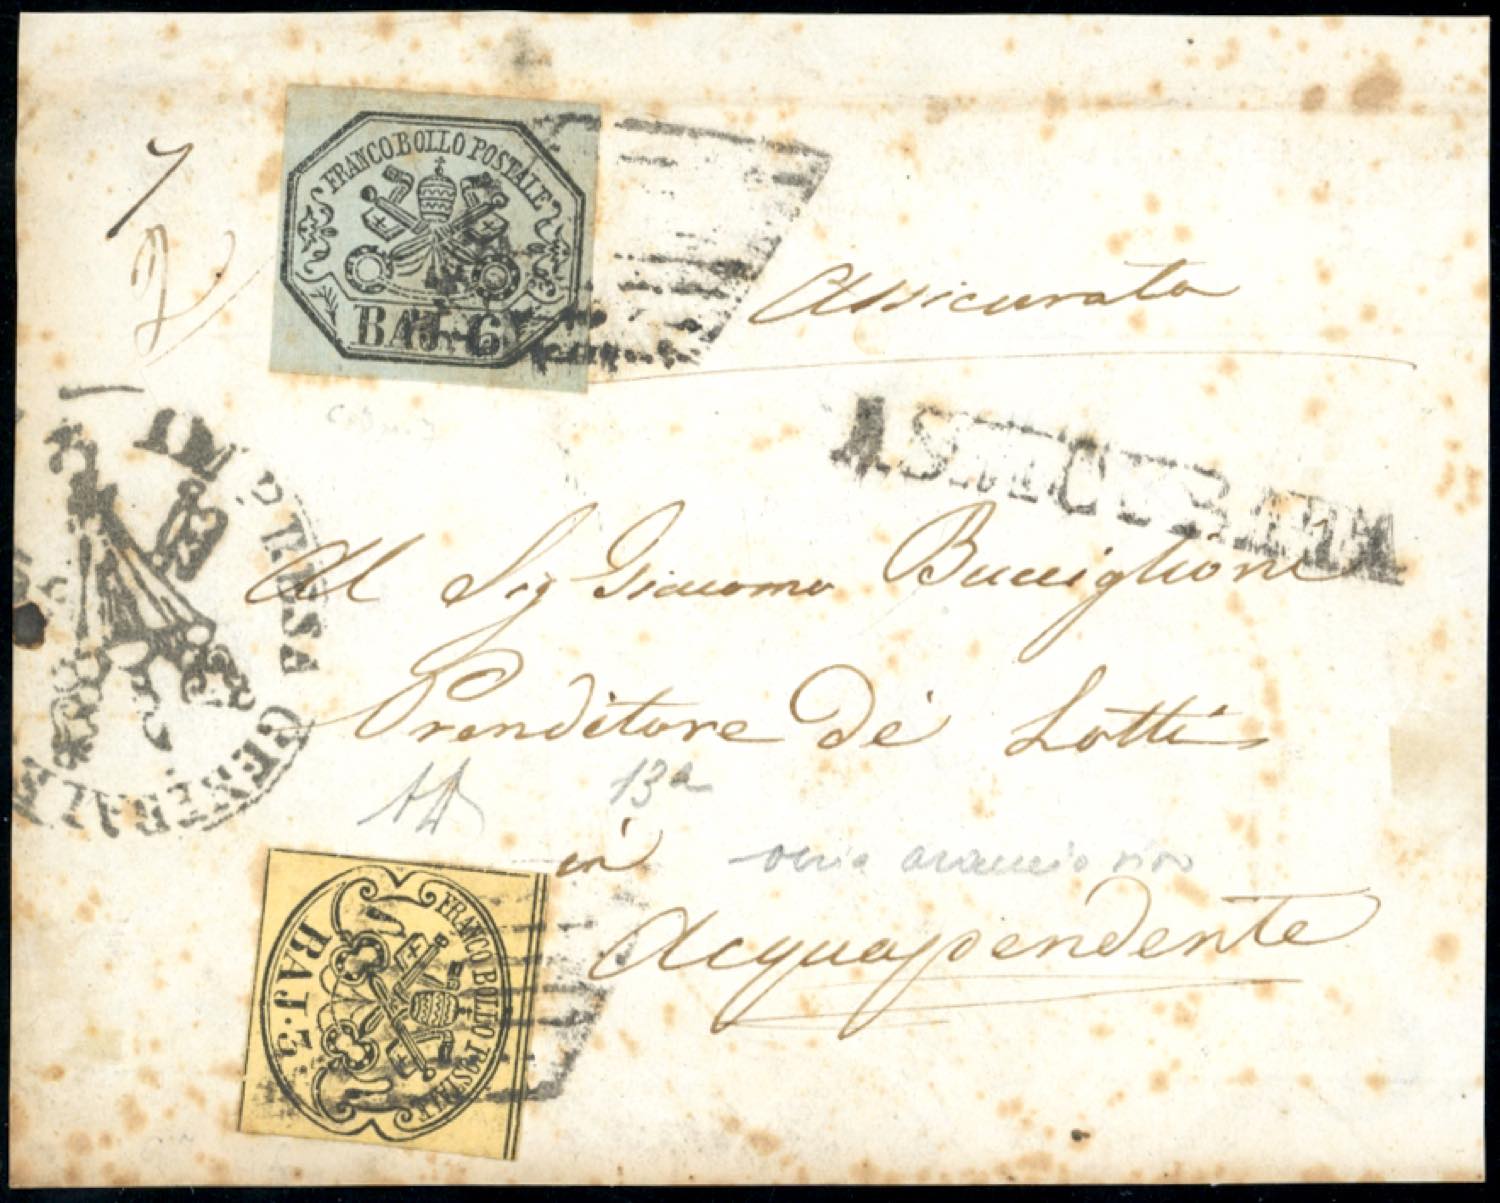 7
2
FRANCO BOLLO POSTALE
BAJ. 6
Assicurata
ASSICURATA
IMPRESA GENERALE
Al Sig Giacomo Bucciglioni
Prenditore dè Lotti
13a
in
Acquapendente
FRANCO BOLLO POSTALE
BAJ. 3.